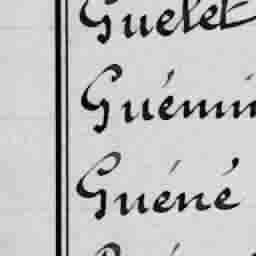 Guelet
Guémi
Guéné